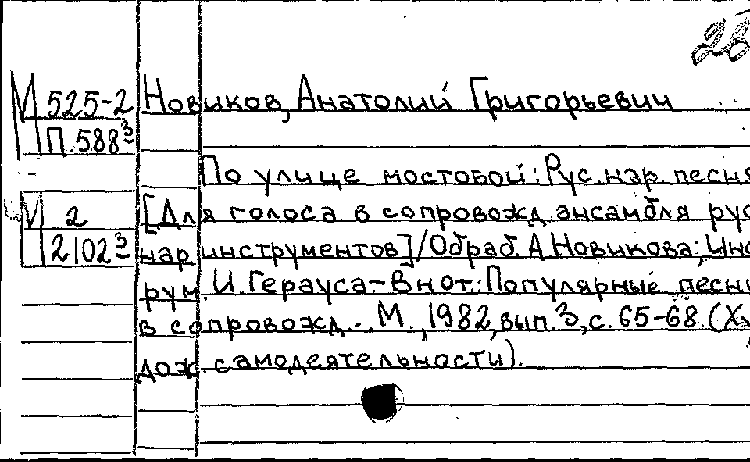 28
М 525-2 Новиков, Анатолий Григорьевич
П.588³
По улице мостовой: Рус. нар. песня
М 2 [Для голоса в сопровожд. ансамбля рус
2102³ нар. инструментов] / Обраб. А. Новикова; Инс
рум. И. Герауса – В нот.: Популярные песни
в сопровожд... М., 1982, вып. 3, с. 65-68. (Ху
дож. самодеятельности).